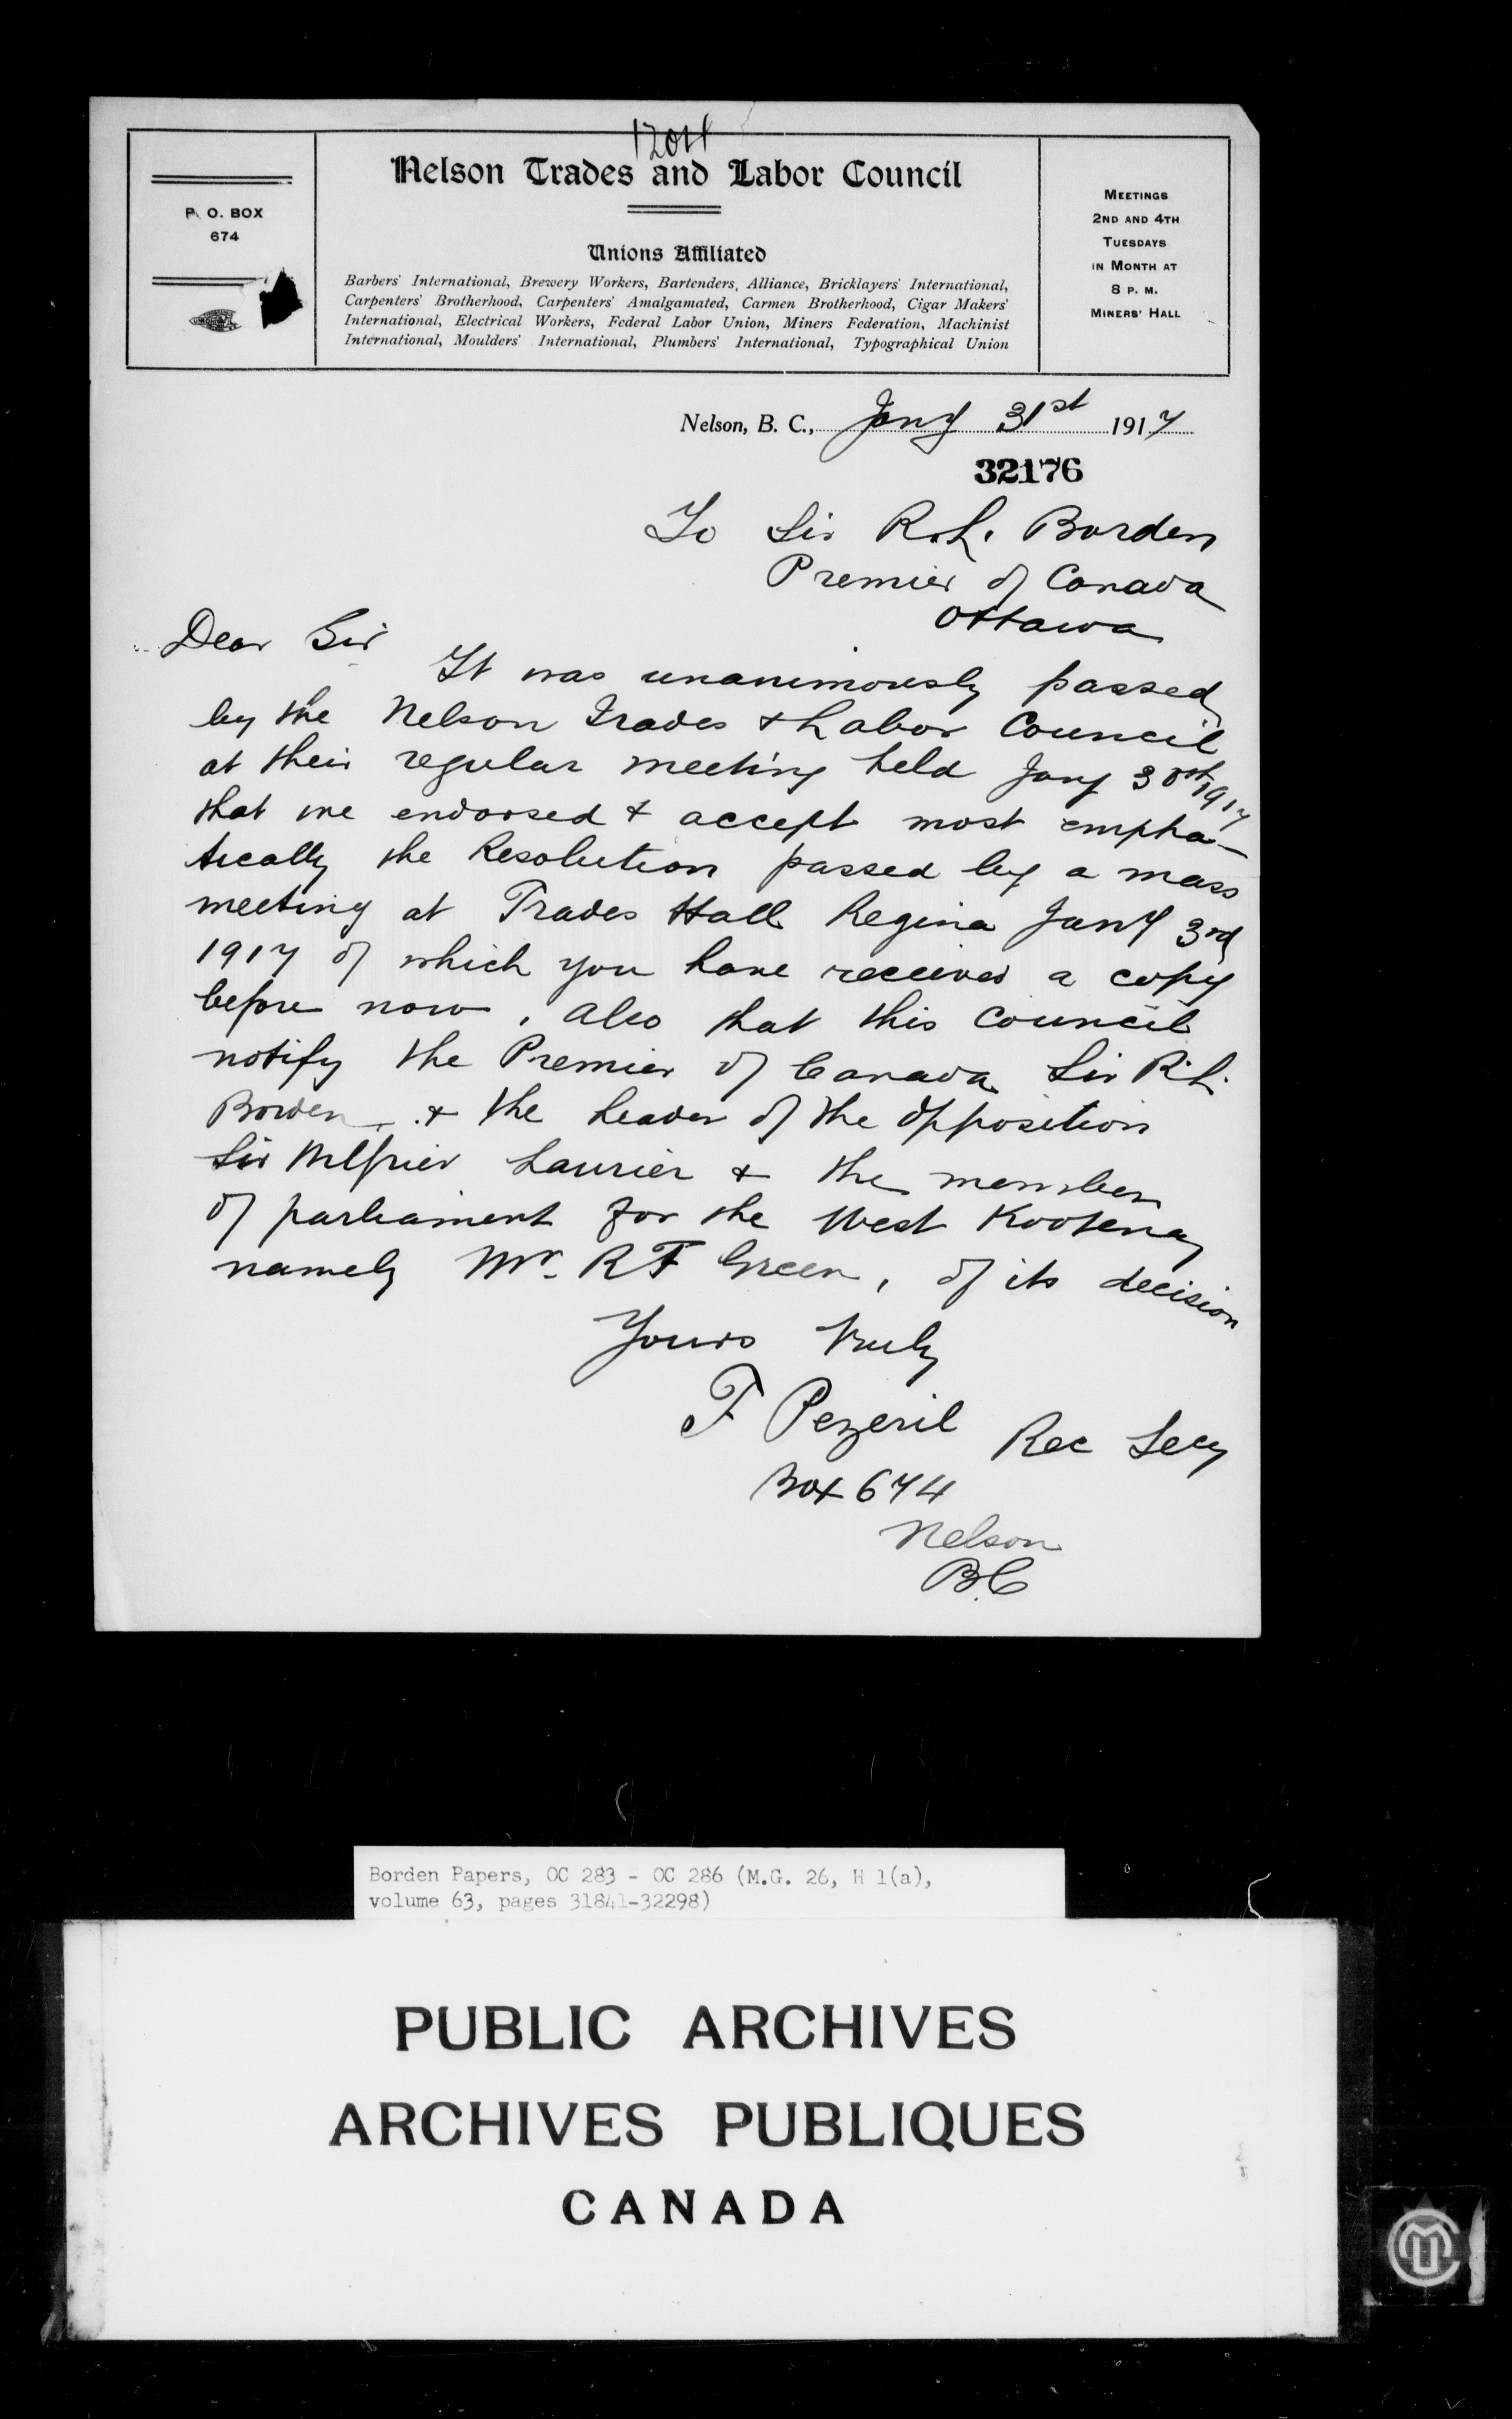 Nelson Trades and Labor Council
P. O. BOX
674
Unions Affiliated
Barbers' International, Brewery Workers, Bartenders, Alliance, Bricklayers' International,
Carpenters' Brotherhood, Carpenters' Amalgamated, Carmen Brotherhood, Cigar Makers'
International, Electrical Workers, Federal Labor Union, Miners Federation, Machinist
International, Moulders' International, Plumbers' International, Typographical Union
MEETINGS
2ND AND 4TH
TUESDAYS
IN MONTH AT
8 P. M.
MINERS' HALL
Nelson, B. C., Jany 31st 1917
32176
To Sir R.L. Borden
Premier of Canada
Ottawa
Dear Sir
It was unanimously passed
by the Nelson Trades & Labor Council
at their regular meeting held Jany 30th 1917
that we endorsed & accept most empha-
tically the Resolution passed by a mass
meeting at Trades Hall Regina Jany 3rd
1917 of which you have received a copy
before now, also that this Council
notify the Premier of Canada Sir R.L.
Borden & the Leader of the Opposition
Sir Wilfried Laurier & the member
of parliament for the West Kootenay
namely Mr. R F Green, of its decision
Yours truly
F Pezeril Rec Secy
Box 674
Nelson
B.C
Borden Papers, OC 283 - OC 286 (M.G. 26, H 1(a),
volume 63, pages 31841-32298)
PUBLIC ARCHIVES
ARCHIVES PUBLIQUES
CANADA